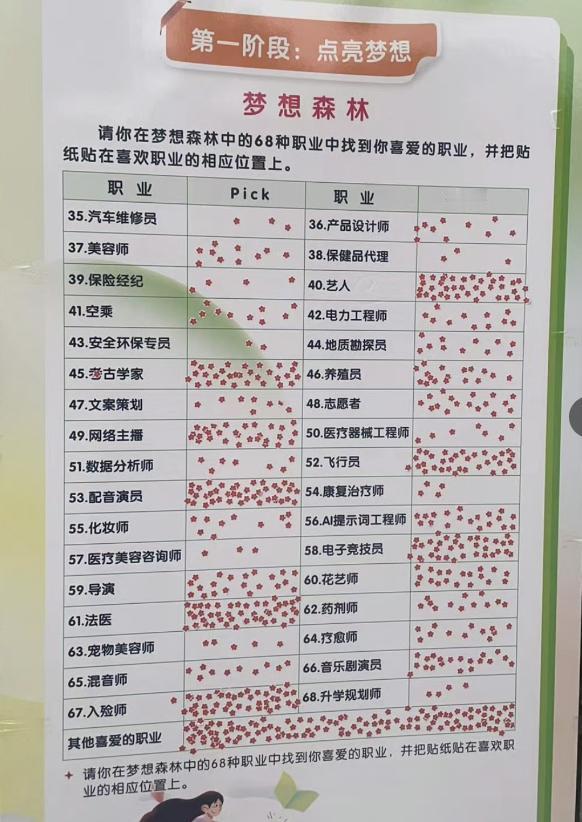 第一阶段：点亮梦想
梦想森林
请你在梦想森林中的68种职业中找到你喜爱的职业，并把贴
纸贴在喜欢职业的相应位置上。
职 业 Pick 职 业
35.汽车维修员 36.产品设计师
37.美容师 38.保健品代理
39.保险经纪 40.艺人
41.空乘 42.电力工程师
43.安全环保专员 44.地质勘探员
45.考古学家 46.养殖员
47.文案策划 48.志愿者
49.网络主播 50.医疗器械工程师
51.数据分析师 52.飞行员
53.配音演员 54.康复治疗师
55.化妆师 56.AI提示词工程师
57.医疗美容咨询师 58.电子竞技员
59.导演 60.花艺师
61.法医 62.药剂师
63.宠物美容师 64.疗愈师
65.混音师 66.音乐剧演员
67.入殓师 68.升学规划师
其他喜爱的职业
请你在梦想森林中的68种职业中找到你喜爱的职业，并把贴纸贴在喜欢职
业的相应位置上。